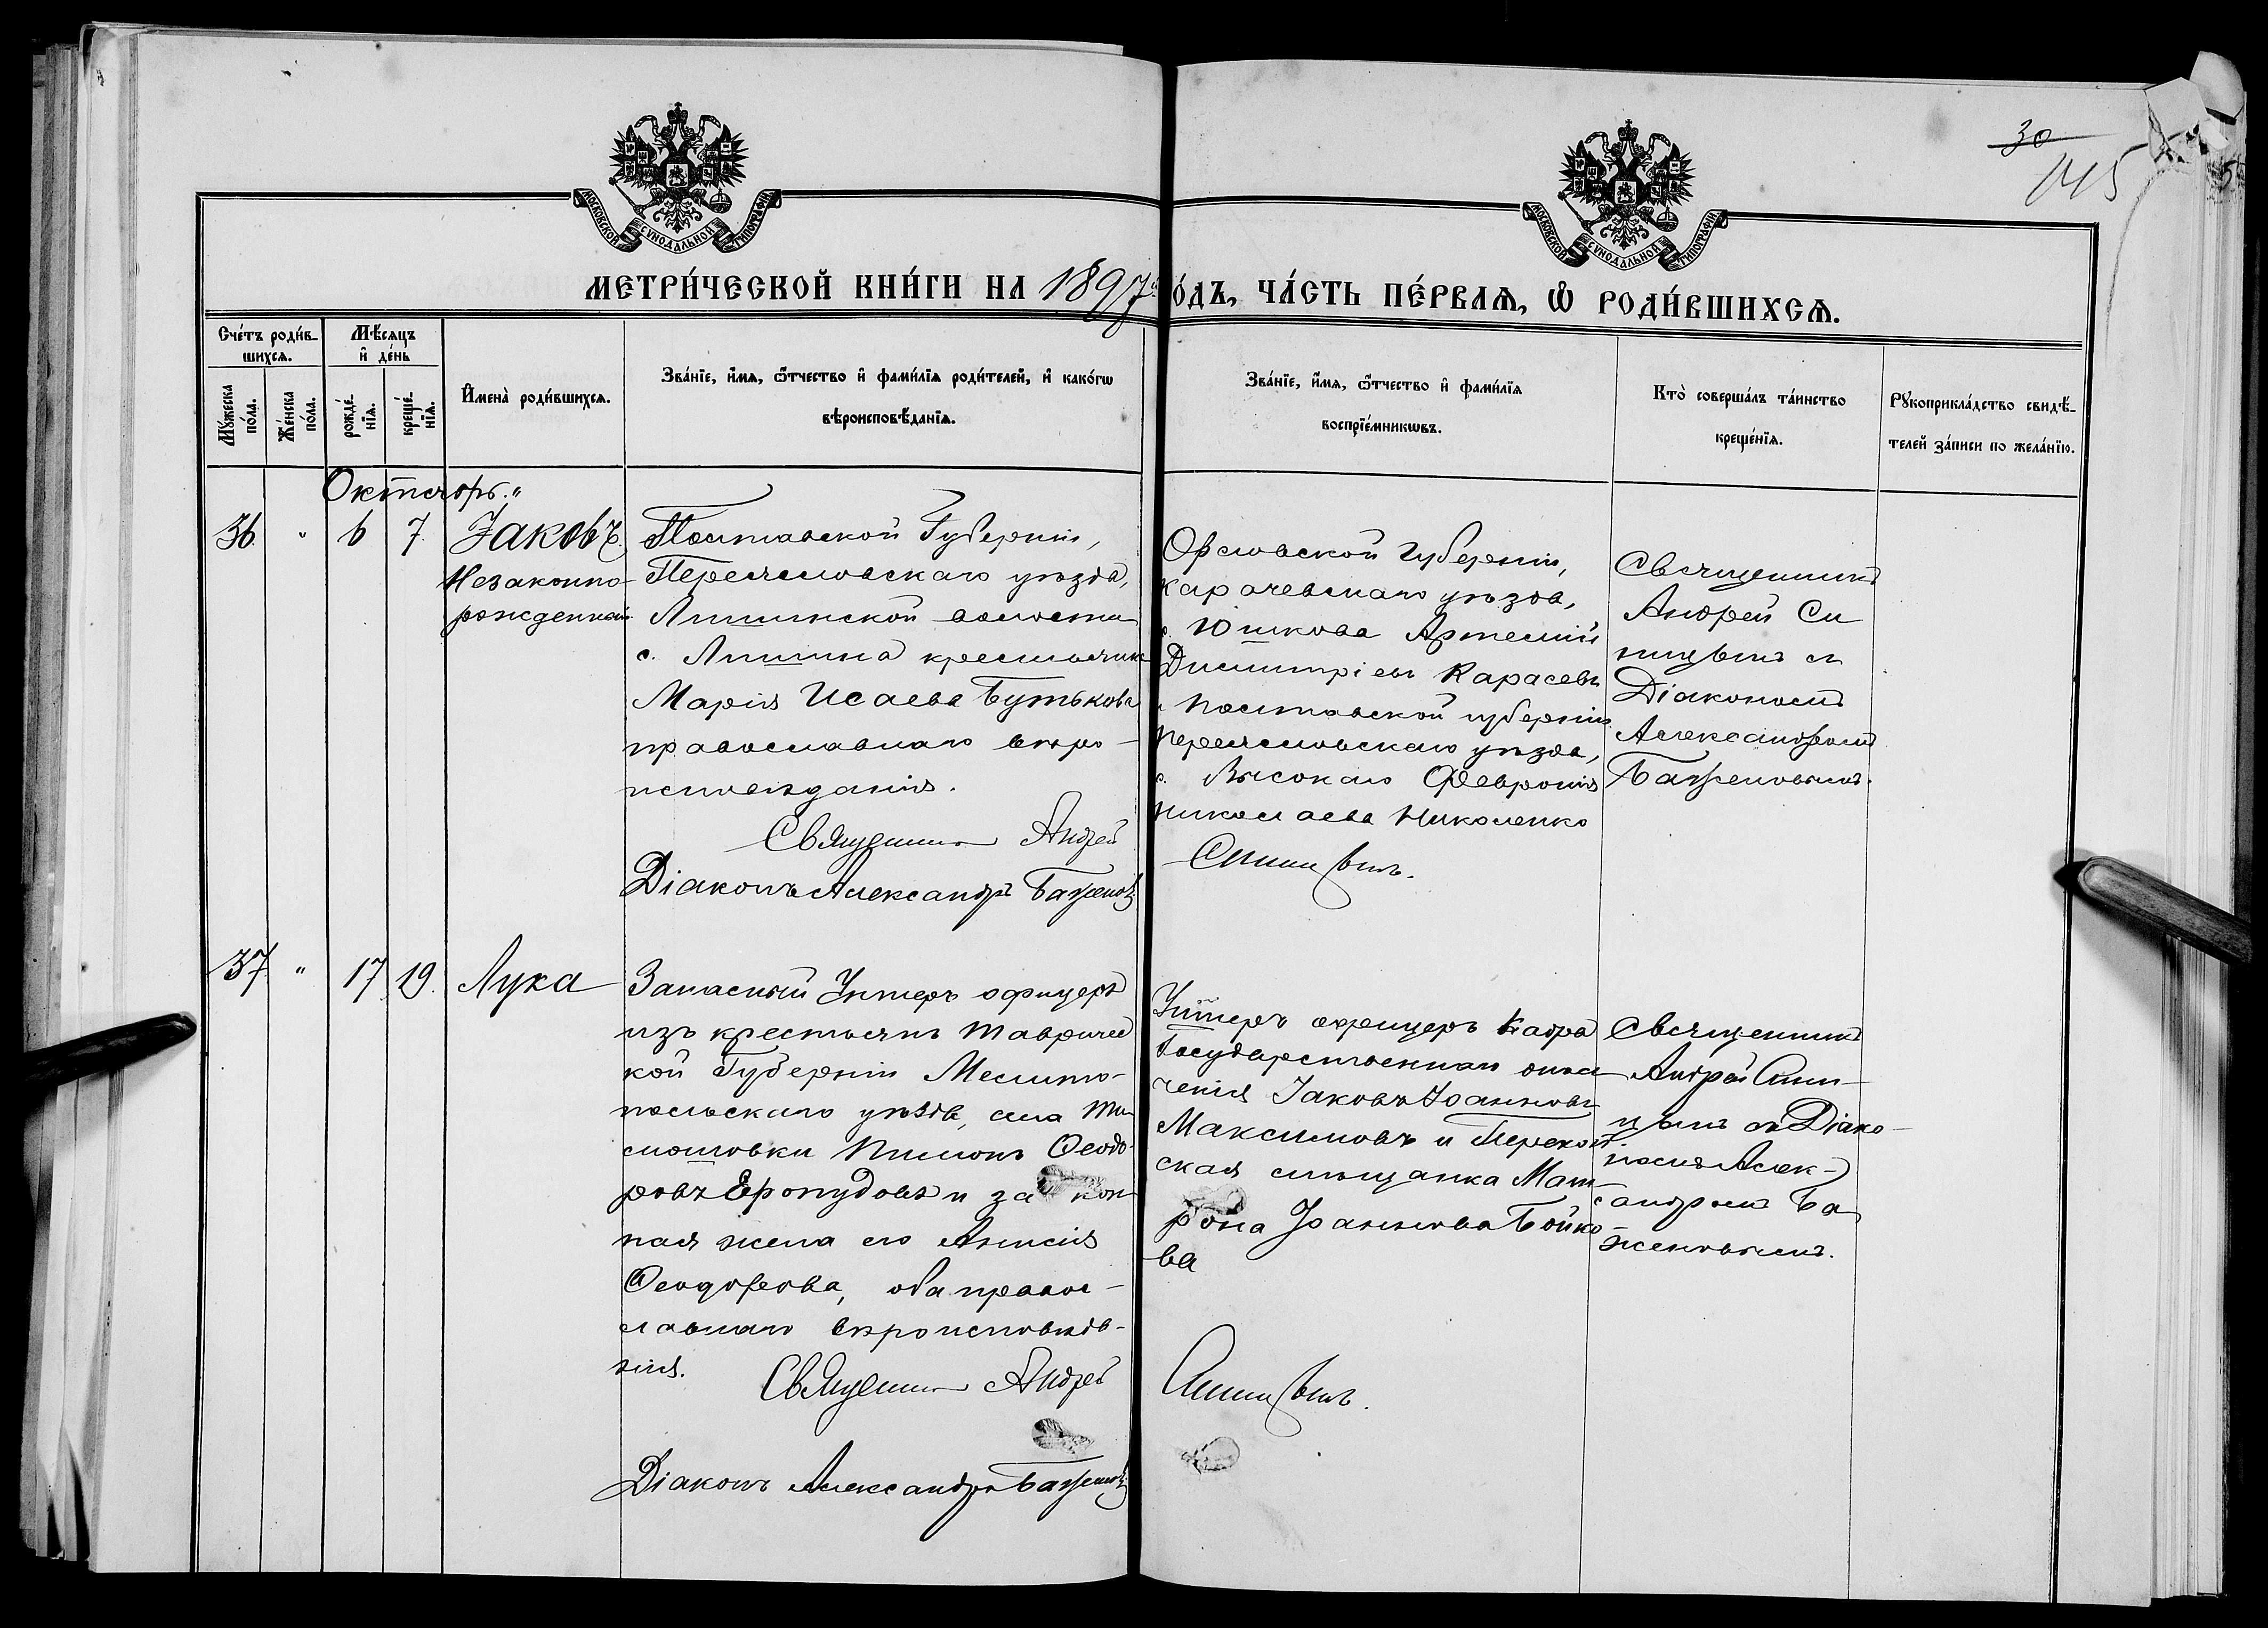 30
145
МОСКОВСКОЙ СѴНОДАЛЬНОЙ ТИПОГРАФІИ
МОСКОВСКОЙ СѴНОДАЛЬНОЙ ТИПОГРАФІИ
МЕТРИ́ЧЕСКОЙ КНИ́ГИ НА 1897й
О́ДЪ, ЧА́СТЬ ПЕ́РВАѦ, Ѡ҆ РОДИ́ВШИХСѦ.
Сче́тъ роди́в-
шихсѧ.
Мꙋ́жеска по́ла.
Же́нска по́ла.
Мѣ́сѧцъ
и҆ де́нь
рожде́-
нїѧ.
креще́-
нїѧ.
И҆мена̀ роди́вшихсѧ.
Зва́нїе, и҆́мѧ, ѻ҆́тчество и҆ фами́лїѧ роди́телей, и҆ како́гѡ
вѣроисповѣ́данїѧ.
Зва́нїе, и҆́мѧ, ѻ҆́тчество и҆ фами́лїѧ
воспрїе́мникѡвъ.
Кто̀ соверша́лъ та́инство
креще́нїѧ.
Рꙋкоприкла́дство свидѣ́-
телей за́писи по жела́нїю.
Октябрь.
36. " 6 7. Іаковъ.
Незаконно-
рожденный.
Полтавской Губерніи,
Переяславскаго уѣзда,
волости
с. крестьянка
Марія Исаева Бутькова
православнаго вѣро-
исповѣданія.
Священникъ Андрей
Діаконъ Александръ Баженовъ
Орловской губерніи,
Карачевскаго уѣзда,
с. Юшкова Артемій
Димитріевъ Карасевъ
и Полтавской губерніи
Переяславскаго уѣзда,
с. Высокаго Февронія
Николаева Николенко
Синицынъ.
Священникъ
Андрей Си
ницынъ съ
Діакономъ
Александромъ
Баженовымъ.
37. " 17. 19. Лука
Запасный Унтеръ офицеръ
изъ крестьянъ Тавричес
кой Губерніи Мелито-
польскаго уѣзда, села Ти
мошовки Пимонъ Ѳеодо-
ровъ и закон
ная жена его Анисія
Ѳеодорова, оба правос-
лавнаго вѣроисповѣда-
нія.
Священникъ Андрей
Діаконъ Александръ Баженовъ
Унтеръ офицеръ Кадра
Государственнаго опол
ченія Іаковъ Іоанновъ
Максимовъ и Перекоп.
ская мѣщанка Мат-
рона Іоаннова Бойко-
ва
Синицынъ.
Священникъ
Андрей Сини-
цынъ съ Діако-
номъ Алек-
сандромъ Ба
женовымъ.